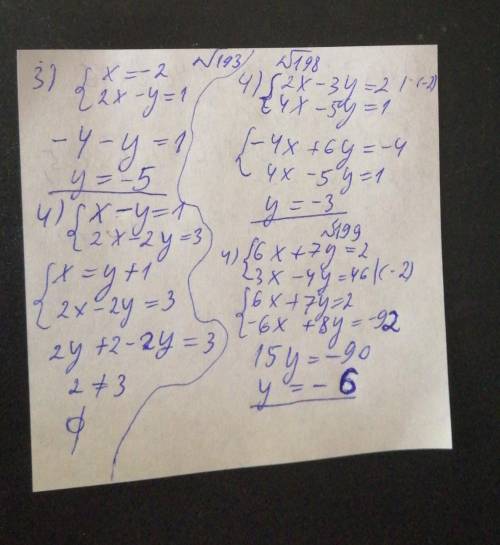 №193
3) { x = -2
2x - y = 1
-4 - y = 1
y = -5
4) { x - y = 1
2x - 2y = 3
{ x = y + 1
2x - 2y = 3
2y + 2 - 2y = 3
2 ≠ 3
ϕ
№198
4) { 2x - 3y = 2 | · (-2)
4x - 5y = 1
{ -4x + 6y = -4
4x - 5y = 1
y = -3
№199
4) { 6x + 7y = 2
3x - 4y = 46 | · (-2)
{ 6x + 7y = 2
-6x + 8y = -92
15y = -90
y = -6